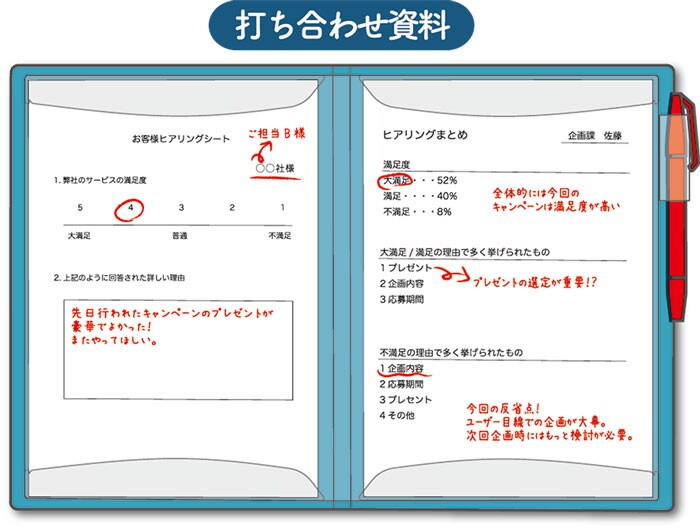 打ち合わせ資料
お客様ヒアリングシート
ご担当B様
○○社様
1. 弊社のサービスの満足度
5 4 3 2 1
大満足 普通 不満足
2. 上記のように回答された詳しい理由
先日行われたキャンペーンのプレゼントが
豪華でよかった!
またやってほしい。
ヒアリングまとめ
企画課 佐藤
満足度
大満足・・・52%
満足・・・・40%
不満足・・・8%
全体的には今回の
キャンペーンは満足度が高い
大満足 / 満足の理由で多く挙げられたもの
1 プレゼント
2 企画内容
3 応募期間
プレゼントの選定が重要!?
不満足の理由で多く挙げられたもの
1 企画内容
2 応募期間
3 プレゼント
4 その他
今回の反省点!
ユーザー目線での企画が大事。
次回企画時にはもっと検討が必要。